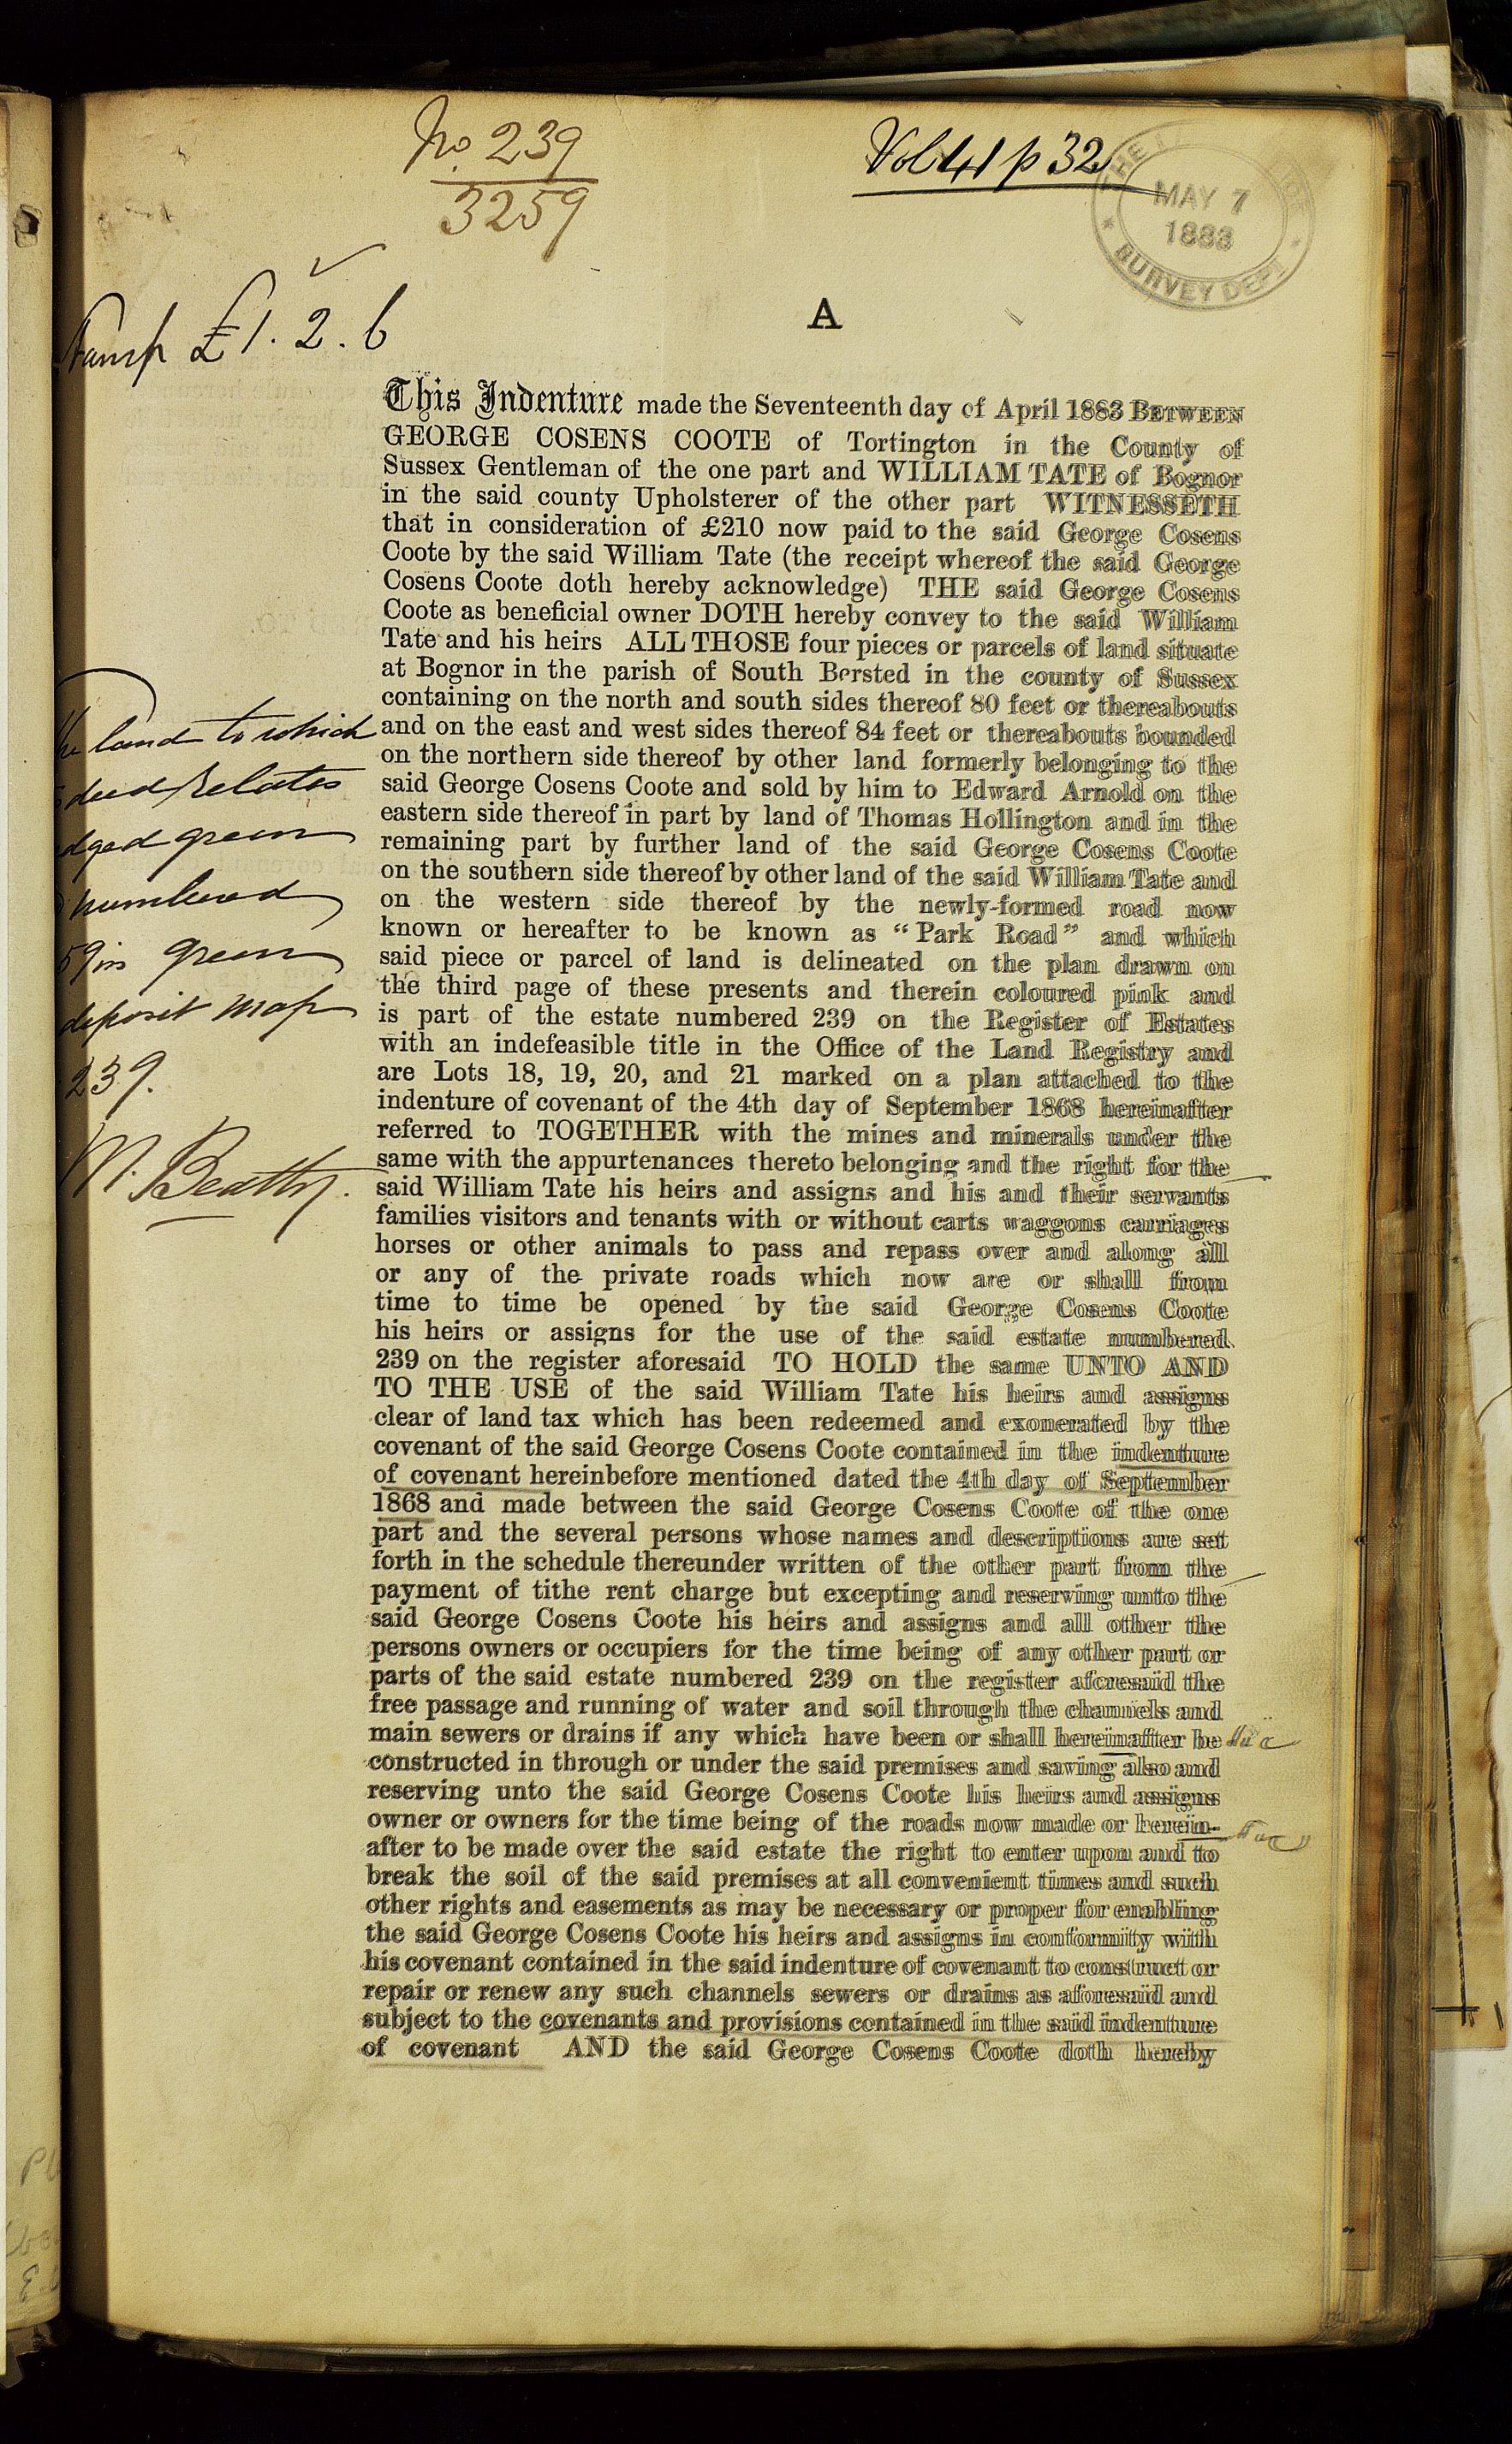 No. 239
3259
Vol 41 p 32
THE
MAY 7
1883
SURVEY DEPT
Stamp £1. 2. 6
A
This Indenture made the Seventeenth day of April 1883 BETWEEN
GEORGE COSENS COOTE of Tortington in the County of
Sussex Gentleman of the one part and WILLIAM TATE of Bognor
in the said county Upholsterer of the other part WITNESSETH
that in consideration of £210 now paid to the said George Cosens
Coote by the said William Tate (the receipt whereof the said George
Cosens Coote doth hereby acknowledge) THE said George Cosens
Coote as beneficial owner DOTH hereby convey to the said William
Tate and his heirs ALL THOSE four pieces or parcels of land situate
at Bognor in the parish of South Bersted in the county of Sussex
containing on the north and south sides thereof 80 feet or thereabouts
and on the east and west sides thereof 84 feet or thereabouts bounded
on the northern side thereof by other land formerly belonging to the
said George Cosens Coote and sold by him to Edward Arnold on the
eastern side thereof in part by land of Thomas Hollington and in the
remaining part by further land of the said George Cosens Coote
on the southern side thereof by other land of the said William Tate and
on the western side thereof by the newly-formed road now
known or hereafter to be known as "Park Road" and which
said piece or parcel of land is delineated on the plan drawn on
the third page of these presents and therein coloured pink and
is part of the estate numbered 239 on the Register of Estates
with an indefeasible title in the Office of the Land Registry and
are Lots 18, 19, 20, and 21 marked on a plan attached to the
indenture of covenant of the 4th day of September 1868 hereinafter
referred to TOGETHER with the mines and minerals under the
same with the appurtenances thereto belonging and the right for the
said William Tate his heirs and assigns and his and their servants
families visitors and tenants with or without carts waggons carriages
horses or other animals to pass and repass over and along all
or any of the private roads which now are or shall from
time to time be opened by the said George Cosens Coote
his heirs or assigns for the use of the said estate numbered
239 on the register aforesaid TO HOLD the same UNTO AND
TO THE USE of the said William Tate his heirs and assigns
clear of land tax which has been redeemed and exonerated by the
covenant of the said George Cosens Coote contained in the indenture
of covenant hereinbefore mentioned dated the 4th day of September
1868 and made between the said George Cosens Coote of the one
part and the several persons whose names and descriptions are set
forth in the schedule thereunder written of the other part from the
payment of tithe rent charge but excepting and reserving unto the
said George Cosens Coote his heirs and assigns and all other the
persons owners or occupiers for the time being of any other part or
parts of the said estate numbered 239 on the register aforesaid the
free passage and running of water and soil through the channels and
main sewers or drains if any which have been or shall hereinafter be
constructed in through or under the said premises and saving also and
reserving unto the said George Cosens Coote his heirs and assigns
owner or owners for the time being of the roads now made or herein-
after to be made over the said estate the right to enter upon and to
break the soil of the said premises at all convenient times and such
other rights and easements as may be necessary or proper for enabling
the said George Cosens Coote his heirs and assigns in conformity with
his covenant contained in the said indenture of covenant to construct or
repair or renew any such channels sewers or drains as aforesaid and
subject to the covenants and provisions contained in the said indenture
of covenant AND the said George Cosens Coote doth hereby
land to which
deed relates
edged green
numbered
59 in green
deposit map
239.
M. Beatty.